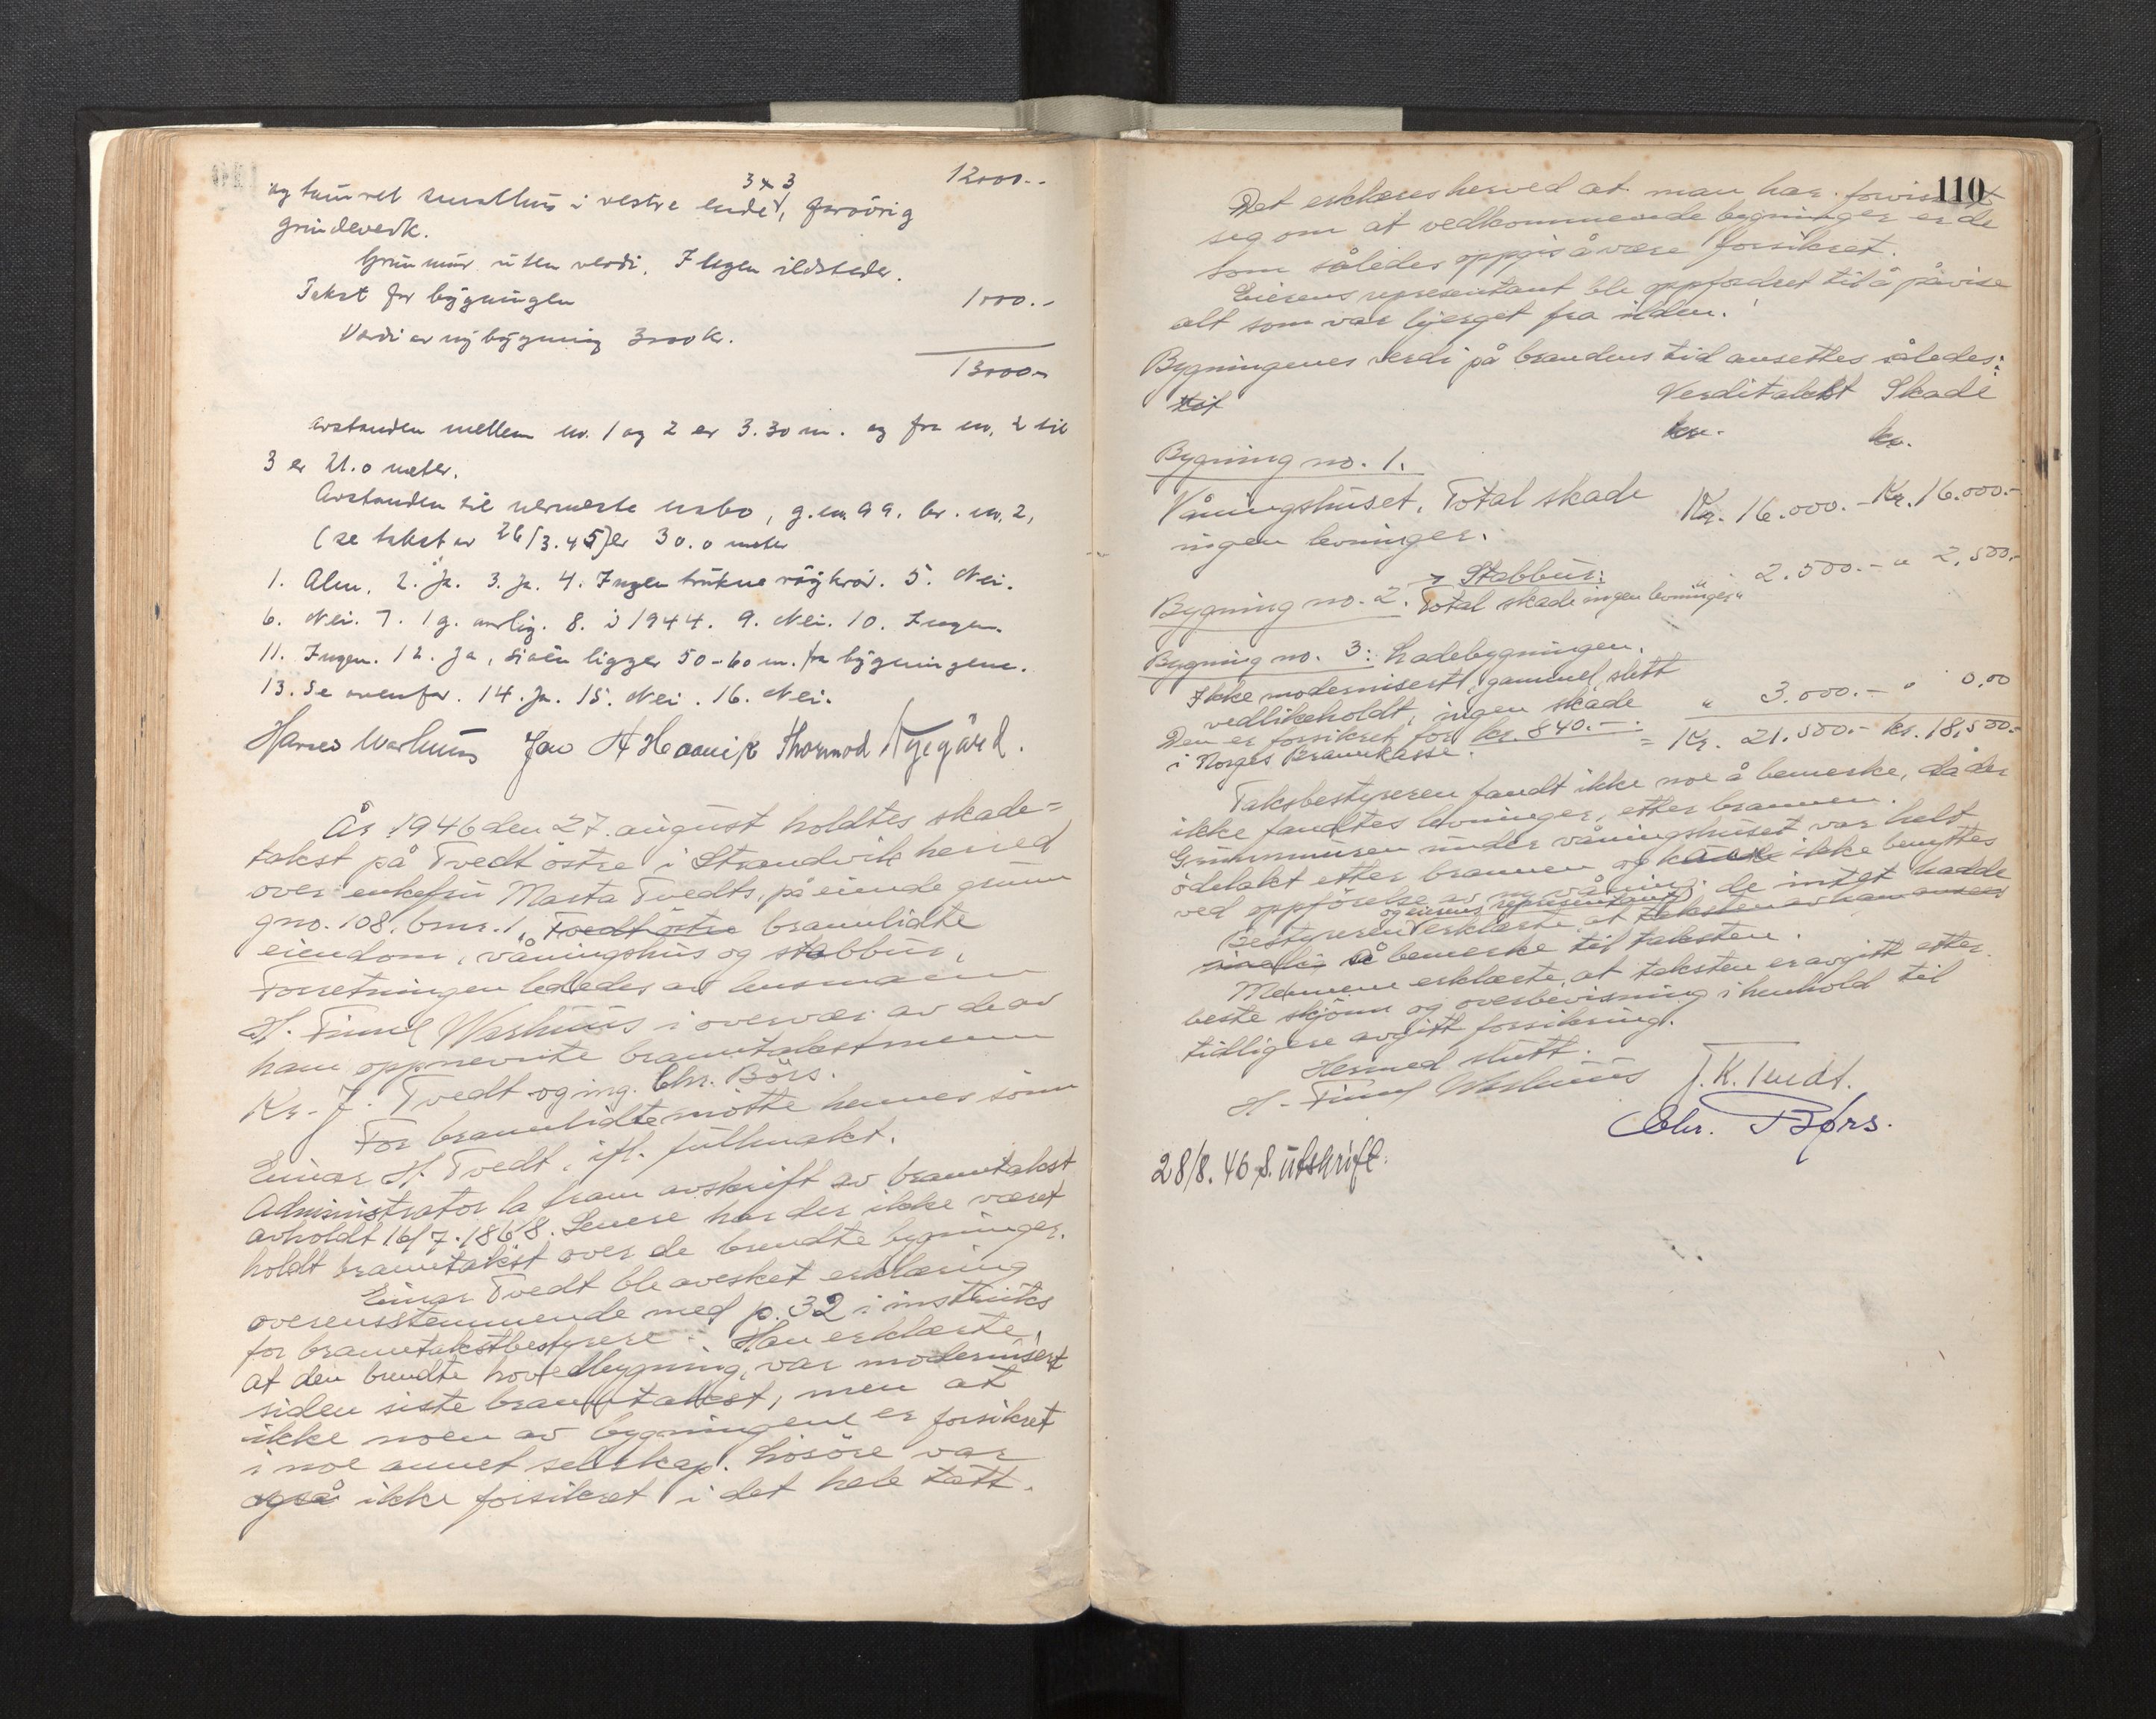 12000.-
og tømret smalhus i vestre ende 3 x 3, forøvrig
grindeverk.
Grunmur uten verdi. Ingen ildsteder.
Takst for bygningen 1000.-
Verdi av nybygning 3000 kr.
13000.-
Avstanden mellem nr. 1 og 2 er 3.30 m. og fra nr. 2 til
3 er 21.0 meter.
Avstanden til nermeste nabo, g.nr. 99. br. nr. 2,
(se takst av 26/3.45) er 30.0 meter
1. Alm. 2. Ja. 3. Ja. 4. Ingen brukne 5. Nei.
6. Nei. 7. 1 g. årlig. 8. i 1944. 9. Nei. 10. Ingen.
11. Ingen. 12. Ja, sjøen ligger 50-60 m. fra bygningene.
13. Se ovenfor. 14. Ja. 15. Nei. 16. Nei.
Warhuus Thormod Nygård.
År 1946 den 27. august holdtes skade=
takst på Tvedt östre i Strandvik herred
over enkefru Marta Tvedts, på eiende grunn
gno. 108, bnr. 1, Tvedt östre brannlidte
eiendom, våningshus og stabbur,
Forretningen lededes av lensmann
H. Finne Warhuus i overvær av de av
ham oppnevnte branntakstmenn
Kr. J. Tvedt og ing. Chr. Börs.
For brannlidte møtte hennes sönn
Einar H. Tvedt, ifl. fullmakt.
Administrator la fram avskrift av branntakst
avholdt 16/7.1868. Senere har der ikke været
holdt branntakst over de brendte bygninger.
Einar Tvedt ble avesket erklæring
overensstemmende med p. 32 i instruks
for branntakstbestyrere. Han erklærte,
at den brendte hovedbygning, var modernisert
siden siste branntakst, men at
ikke noen av bygningene er forsikret
i noe annet selskap. Lösöre var
også ikke forsikret i det hele tatt.
110
Det erklæres herved at man har forvisset
seg om at vedkommende bygninger er de
som således oppgis å være forsikret.
Eierens representant ble oppfordret til å påvise
alt som var bjerget fra ilden.
Bygningenes verdi på brandens tid ansettes således:
Verditakst Skade
kr. kr.
Bygning no. 1.
Våningshuset. Total skade Kr. 16.000.- Kr. 16.000.-
ingen levninger.
→ Stabbur:
Bygning no. 2. Total skade ingen levninger " 2.500.- " 2,500.-
Bygning no. 3: Ladebygningen.
Ikke modernisert, gammel, slett
vedlikeholdt, ingen skade " 3.000.- " 0,00
Den er forsikret for kr. 840.- = Kr. 21.500.- kr. 18,500.-
i Norges Brannkasse.
Takstbestyreren fandt ikke noe å bemerke, da der
ikke fandtes levninger, etter brannen.
Grunnmuren under våningshuset var helt
ödelakt etter brannen og kan ikke benyttes
ved oppförelse av ny våning.
Bestyreren og eierens representant erklærte at de intet hadde
å bemerke til taksten.
Mennene erklærte, at taksten er avgitt etter
beste skjönn og overbevisning i henhold til
tidligere avgitt forsikring.
Hermed slutt.
H. Finne Warhuus J. K. Tvedt.
Chr. Børs.
28/8.46 S. utskrift.